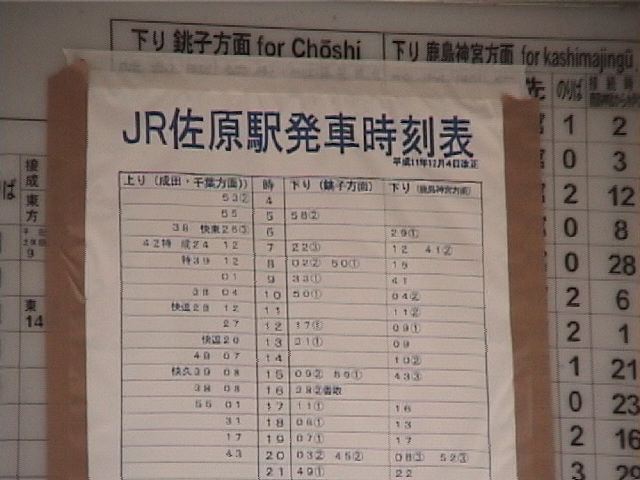 下り 銚子方面 for Chōshi
下り 鹿島神宮方面 for kashimajingū
先 のりば
JR佐原駅発車時刻表
平成11年12月4日改正
上り (成田・千葉方面)) 時 下り (銚子方面) 下り (鹿島神宮方面)
53② 4
55 5 58②
38 快東26③ 6 29①
42特 成24 12 7 22③ 12 41②
特39 12 8 02② 50① 19
01 9 33① 41
38 04 10 50① 04②
12 11 11②
27 12 17① 09①
13 31① 09
49 07 14 10②
快久39 08 15 09② 59① 43③
38 08 16 28②香取
55 01 17 11① 16
31 18 06① 13
17 19 07① 17
43 20 03② 45② 08③ 52③
21 49① 22
接成
ば 東方
9
東
14
1 2
0 3
2 12
0 8
0 28
2 6
2 1
1 21
0 23
2 16
3 29